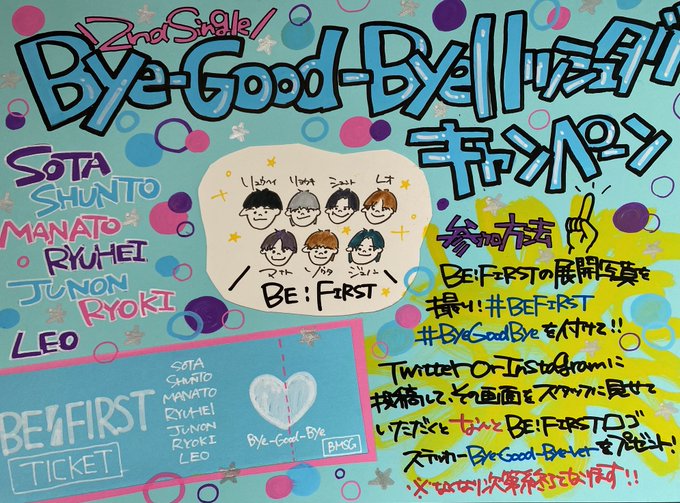 2nd Single
Bye-Good-Bye ハッシュタグ
キャンペーン
SOTA
SHUNTO
MANATO
RYUHEI
JUNON
RYOKI
LEO
リュウヘイ リョウキ シュント レオ
マナト ソウタ ジュノン
BE:FIRST
参加方法
BE:FIRSTの展開写真を
撮り!#BEFIRST
#ByeGoodByeを付けて!!
Twitter Or Instagramに
投稿して、その画面をスタッフに見せて
いただくと なんと BE:FIRSTロゴ
ステッカーBye-Good-Bye-Ver をプレゼント!
※なくなり次第終了となります!!
BE:FIRST
TICKET
SOTA
SHUNTO
MANATO
RYUHEI
JUNON
RYOKI
LEO
Bye-Good-Bye
BMSG